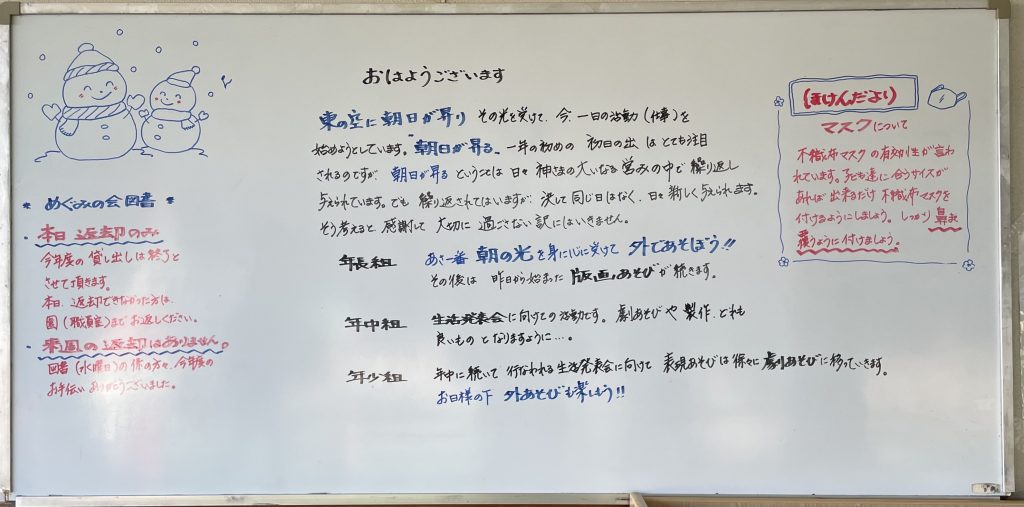 おはようございます
東の空に朝日が昇り その光を受けて、今、一日の活動(仕事)を
始めようとしています。"朝日が昇る"、一年の初めの 初日の出 は とても注目
されるのですが 朝日が昇る ということは 日々 神さまの大いなる 営みの中で 繰り返し
与えられています。でも 繰り返されてはいますが、決して同じ日はなく、日々 新しく与えられます。
そう考えると 感謝して 大切に 過ごさない 訳にはいきません。
年長組 あさ一番 朝の光を身に心に受けて 外であそぼう!!
その後は 昨日から始まった 版画あそびが 続きます。
年中組 生活発表会に向けての活動です。劇あそび や 製作、どれも
良いもの と なりますように…。
年少組 年中に続いて 行なわれる 生活発表会に向けて 表現あそびは 徐々に 劇あそびに移っていきます。
お日様の下 外あそびも楽しもう!!
* めぐみの会図書 *
・本日 返却のみ
今年度の 貸し出しは 終了と
させて頂きます。
本日、返却できなかった方は、
園(職員室)まで お返しください。
・来週の返却はありません。
図書(水曜日)の係の方々、今年度の
お手伝い ありがとうございました。
ほけんだより
マスクについて
不織布マスクの有効性が言わ
れています。子ども達に合うサイズが
あれば 出来るだけ 不織布マスクを
付けるようにしましょう。しっかり 鼻まで
覆うように付けましょう。